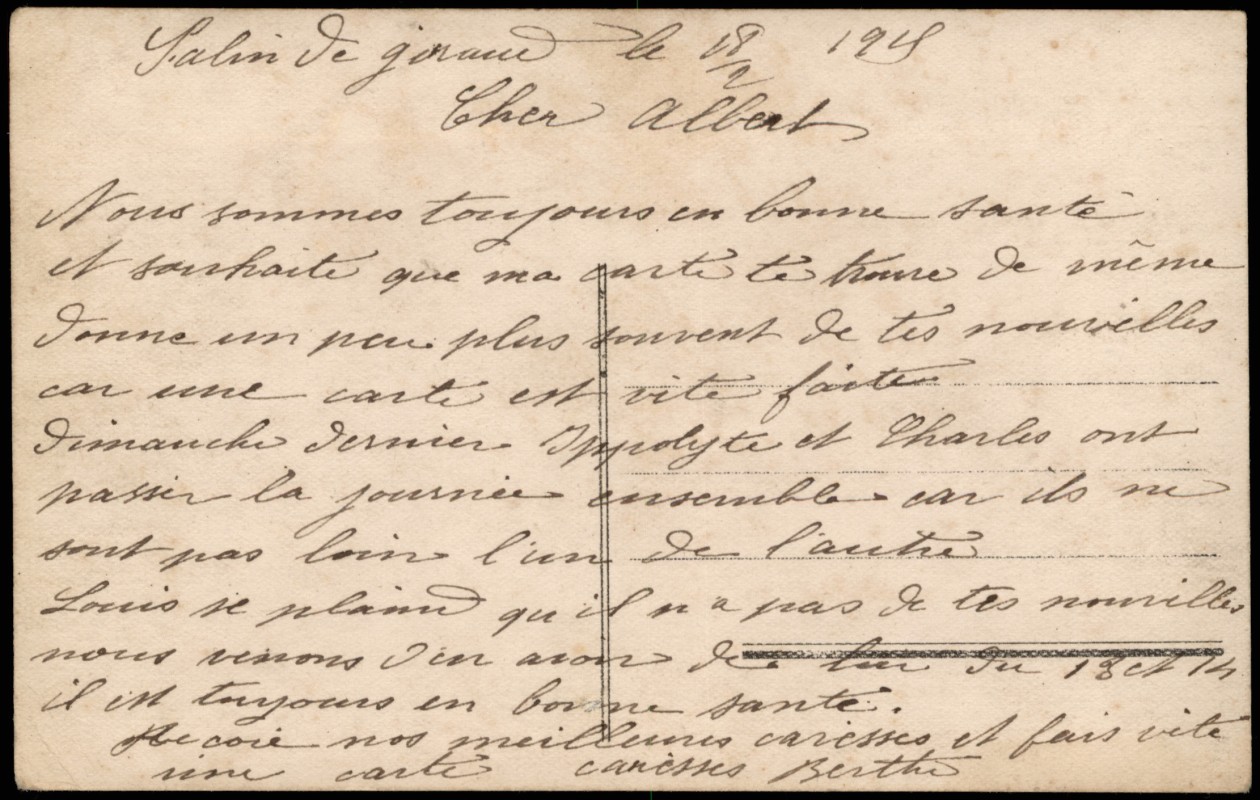 Salin de giraud le 18/2 1915
Cher Albert
Nous sommes toujours en bonne santé
et souhaite que ma carte te trouve de même
donne un peu plus souvent de tes nouvelles
car une carte est vite faite
dimanche dernier Ippolyte et Charles ont
passer la journée ensemble car ils ne
sont pas loin l'un de l'autre
Louis se plaind qu'il n'a pas de tes nouvelles
nous venons d'en avoir de lui du 13 et 14
il est toujours en bonne santé.
Recoie nos meilleures caresses et fais vite
une carte caresses Berthe